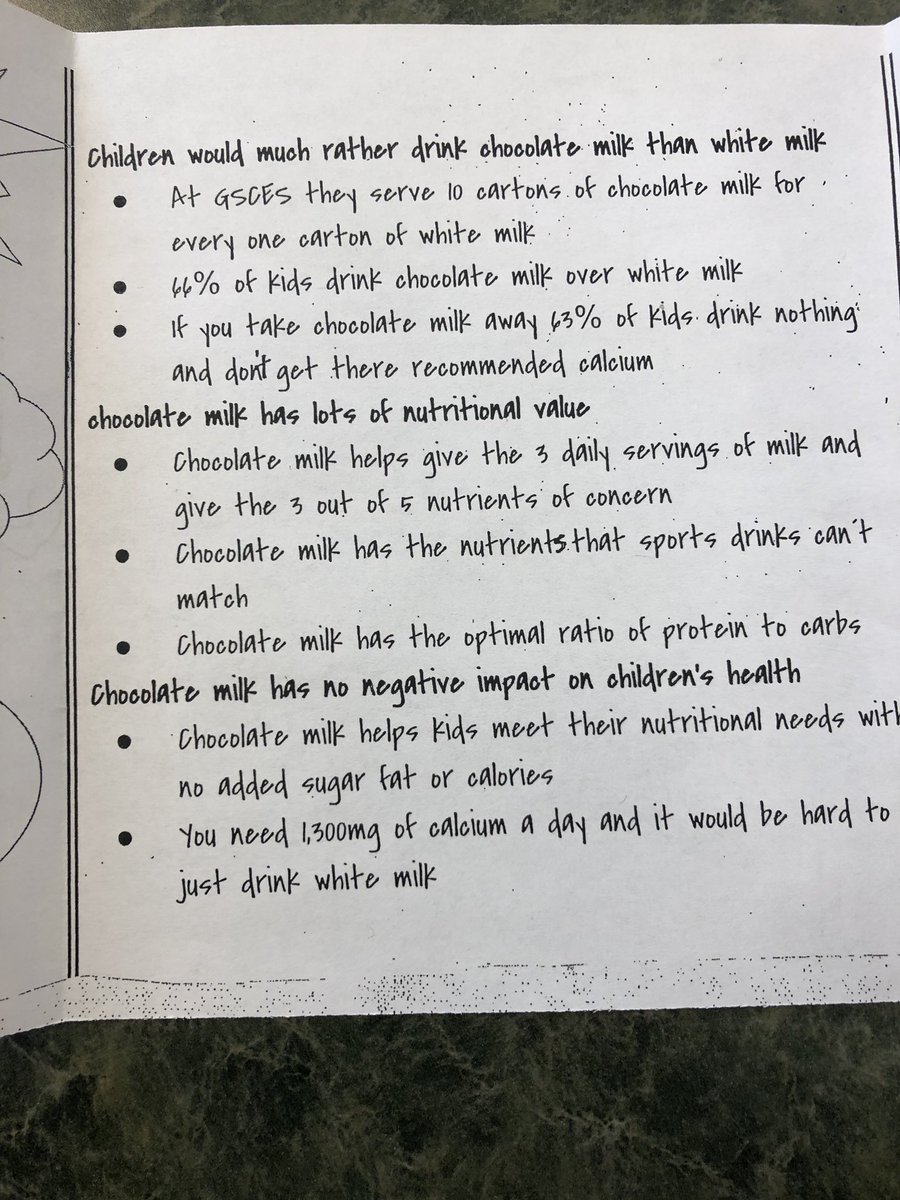 Children would much rather drink chocolate milk than white milk
● At GSCES they serve 10 cartons of chocolate milk for
every one carton of white milk
● 66% of kids drink chocolate milk over white milk
● If you take chocolate milk away 63% of kids drink nothing
and don't get there recommended calcium
chocolate milk has lots of nutritional value
● Chocolate milk helps give the 3 daily servings of milk and
give the 3 out of 5 nutrients of concern
● Chocolate milk has the nutrients that sports drinks can't
match
● Chocolate milk has the optimal ratio of protein to carbs
Chocolate milk has no negative impact on children's health
● Chocolate milk helps kids meet their nutritional needs with
no added sugar fat or calories
● You need 1,300mg of calcium a day and it would be hard to
just drink white milk